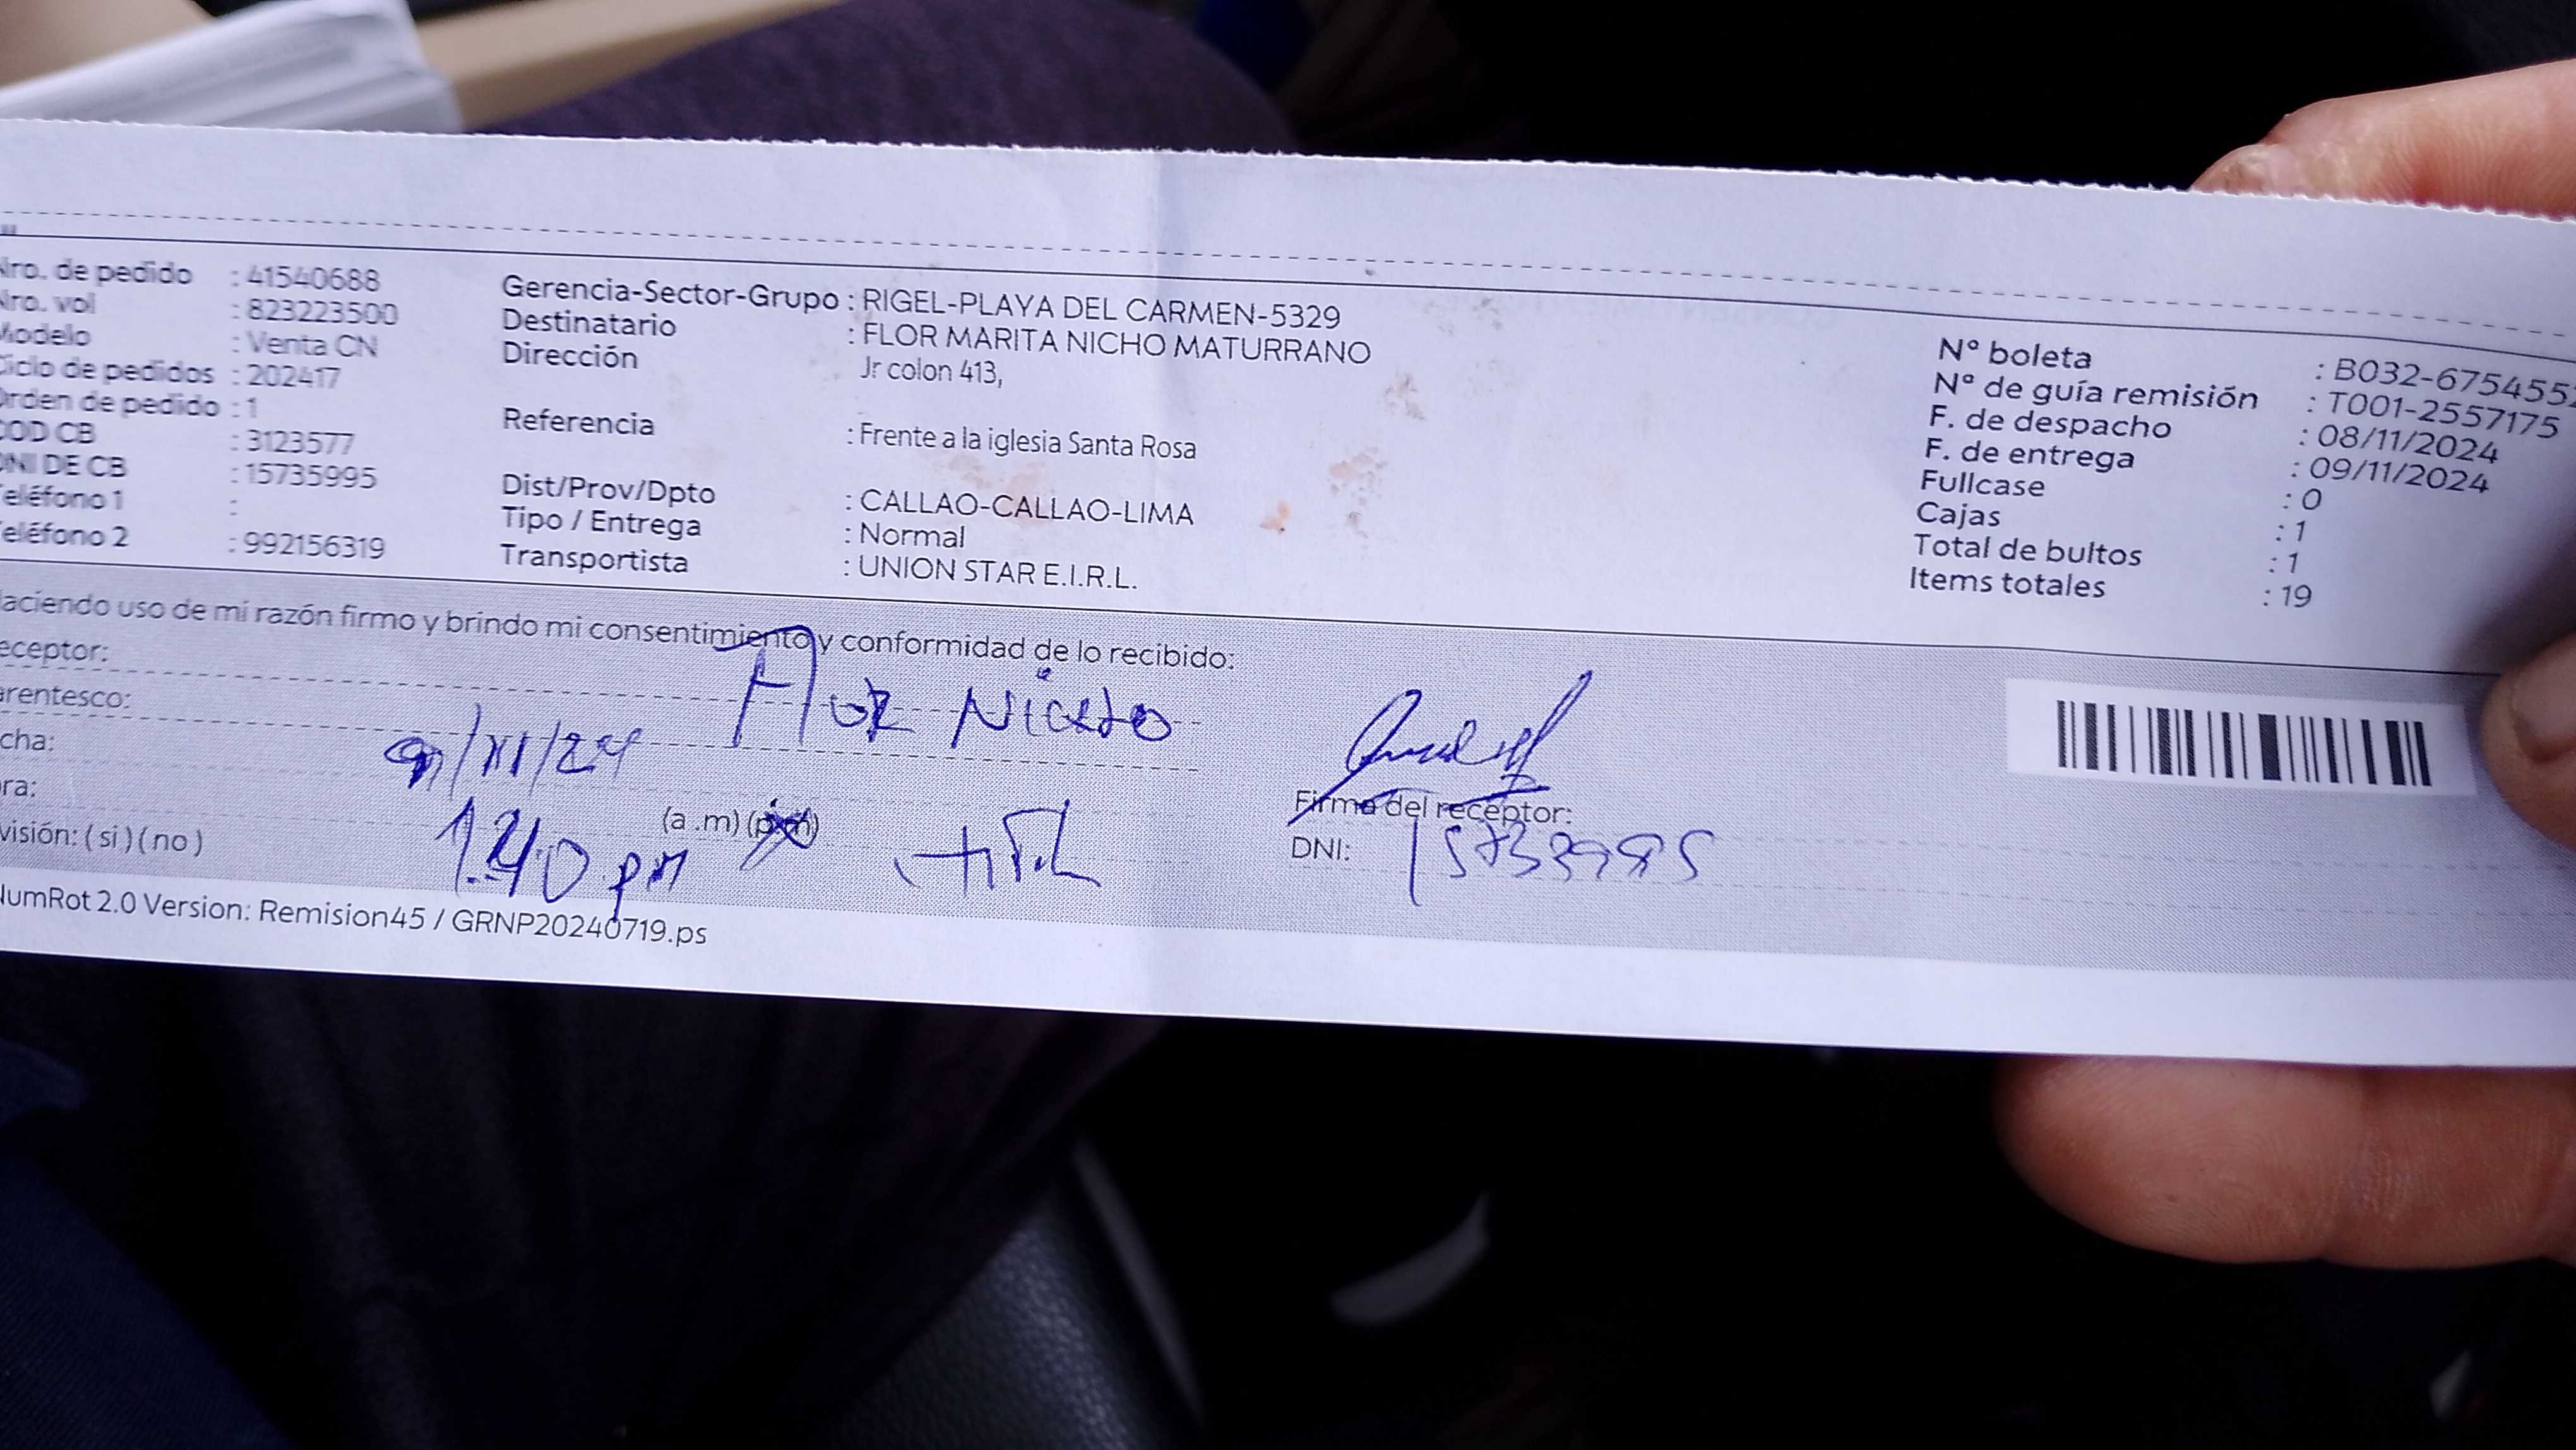 Nro. de pedido : 41540688
Nro. vol : 823223500
Modelo : Venta CN
Ciclo de pedidos : 202417
Orden de pedido : 1
COD CB : 3123577
DNI DE CB : 15735995
Teléfono 1 :
Teléfono 2 : 992156319
Gerencia-Sector-Grupo : RIGEL-PLAYA DEL CARMEN-5329
Destinatario : FLOR MARITA NICHO MATURRANO
Dirección Jr colon 413,
Referencia : Frente a la iglesia Santa Rosa
Dist/Prov/Dpto : CALLAO-CALLAO-LIMA
Tipo / Entrega : Normal
Transportista : UNION STAR E.I.R.L.
Nº boleta : B032-675455
Nº de guía remisión : T001-2557175
F. de despacho : 08/11/2024
F. de entrega : 09/11/2024
Fullcase : 0
Cajas : 1
Total de bultos : 1
Items totales : 19
Haciendo uso de mi razón firmo y brindo mi consentimiento y conformidad de lo recibido:
eceptor: Flor Nicho
arentesco:
cha: 9/11/24
ra: 1.40 pm (a .m) (p.m)
visión: ( si ) ( no )
Firma del receptor:
DNI:
NumRot 2.0 Version: Remision45 / GRNP20240719.ps